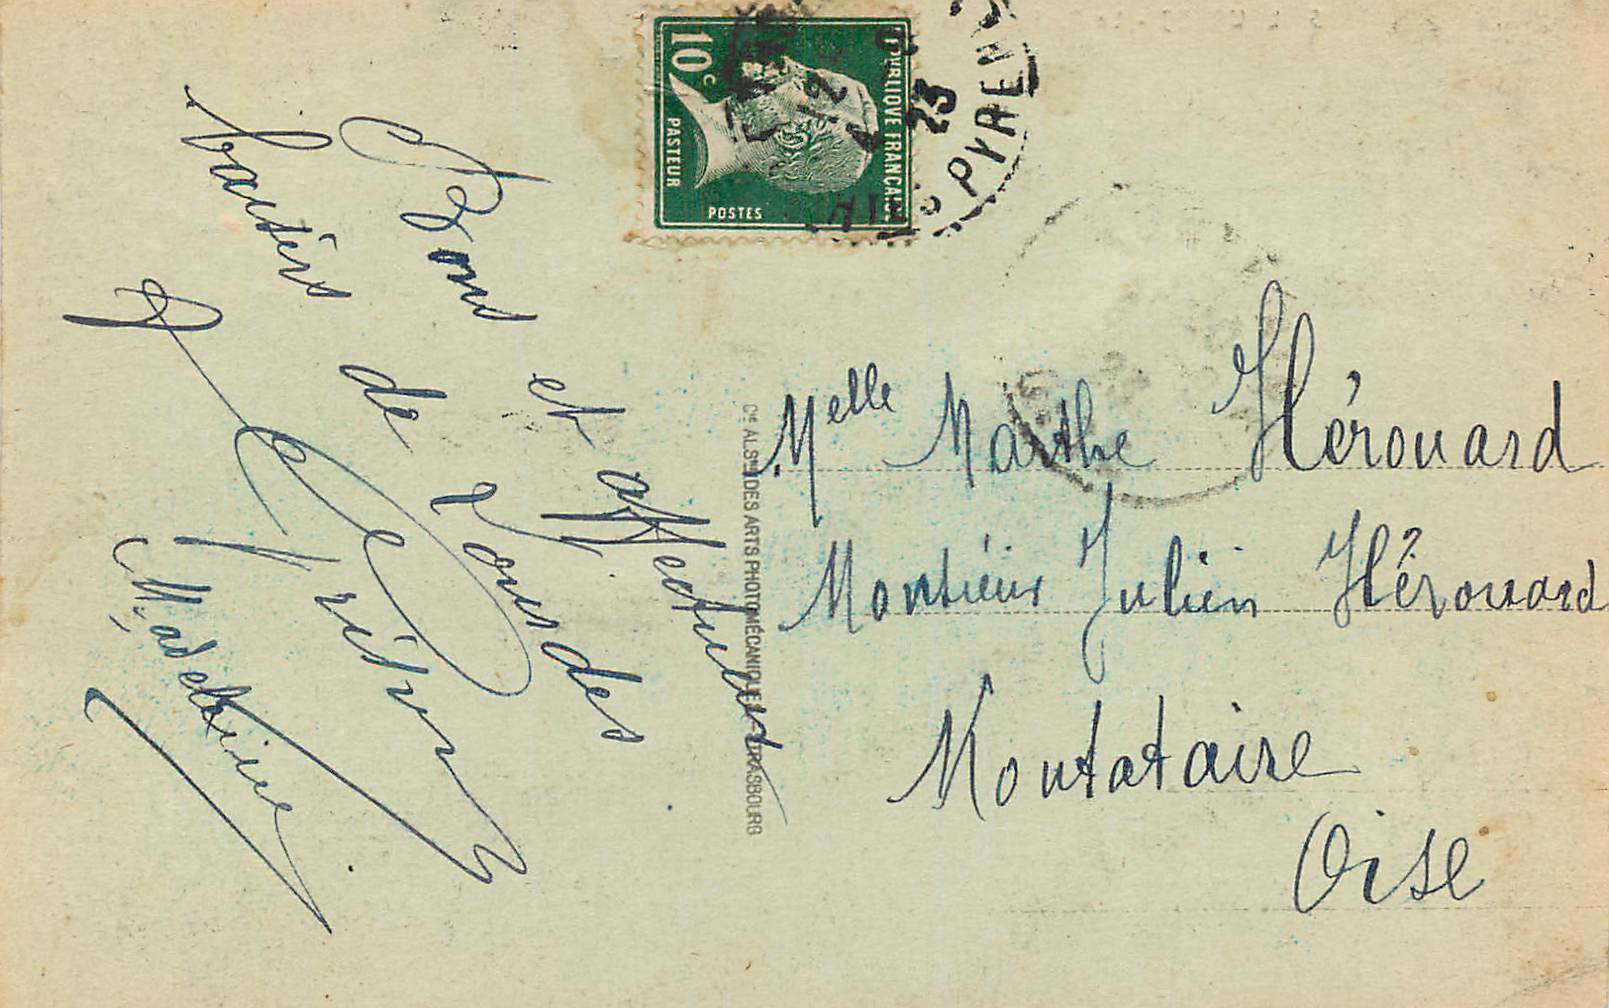 10c
REPUBLIQUE FRANÇAISE
PASTEUR
POSTES
12
4
23
PYRENEES
Bons et affectueux
baisers de Lourdes
Madeleine
Cie ALSne DES ARTS PHOTOMÉCANIQUES - STRASBOURG
Melle Marthe Hérouard
Monsieur Julien Hérouard
Montataire
Oise